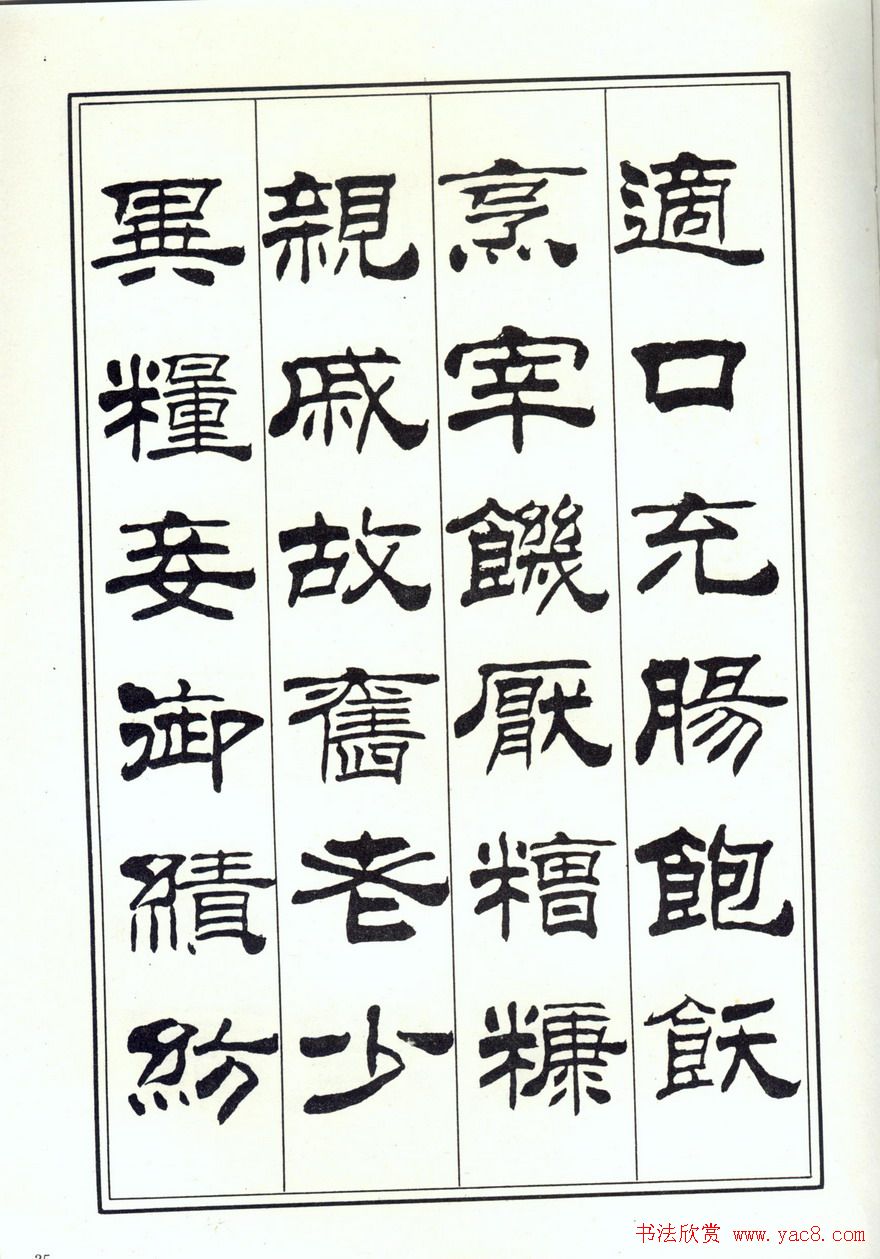 適口充腸飽飫
烹宰饑厭糟糠
親戚故舊老少
異糧妾御績紡
35
书法欣赏 www.yac8.com